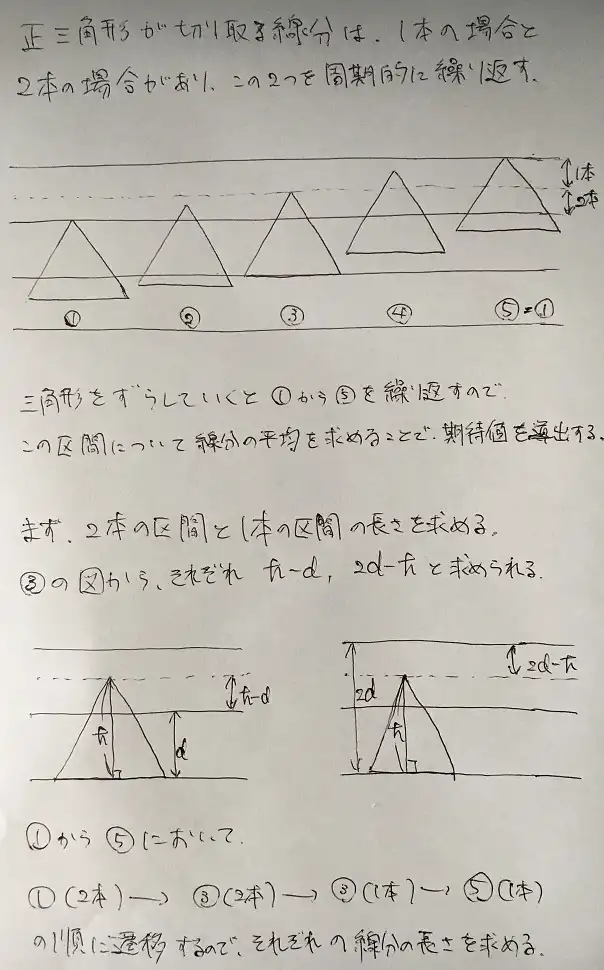 正三角形が切り取る線分は、1本の場合と
2本の場合があり、この2つを周期的に繰り返す。
1本
2本
① ② ③ ④ ⑤=①
三角形をずらしていくと ①から⑤を繰り返すので
この区間について線分の平均を求めることで、期待値を導出する。
まず、2本の区間と1本の区間の長さを求める。
③の図から、それぞれ h-d, 2d-h と求められる。
h-d
h
d
2d-h
2d
h
①から⑤において、
①(2本)→ ③(2本)→ ③(1本)→ ⑤(1本)
の順に遷移するので、それぞれの線分の長さを求める。